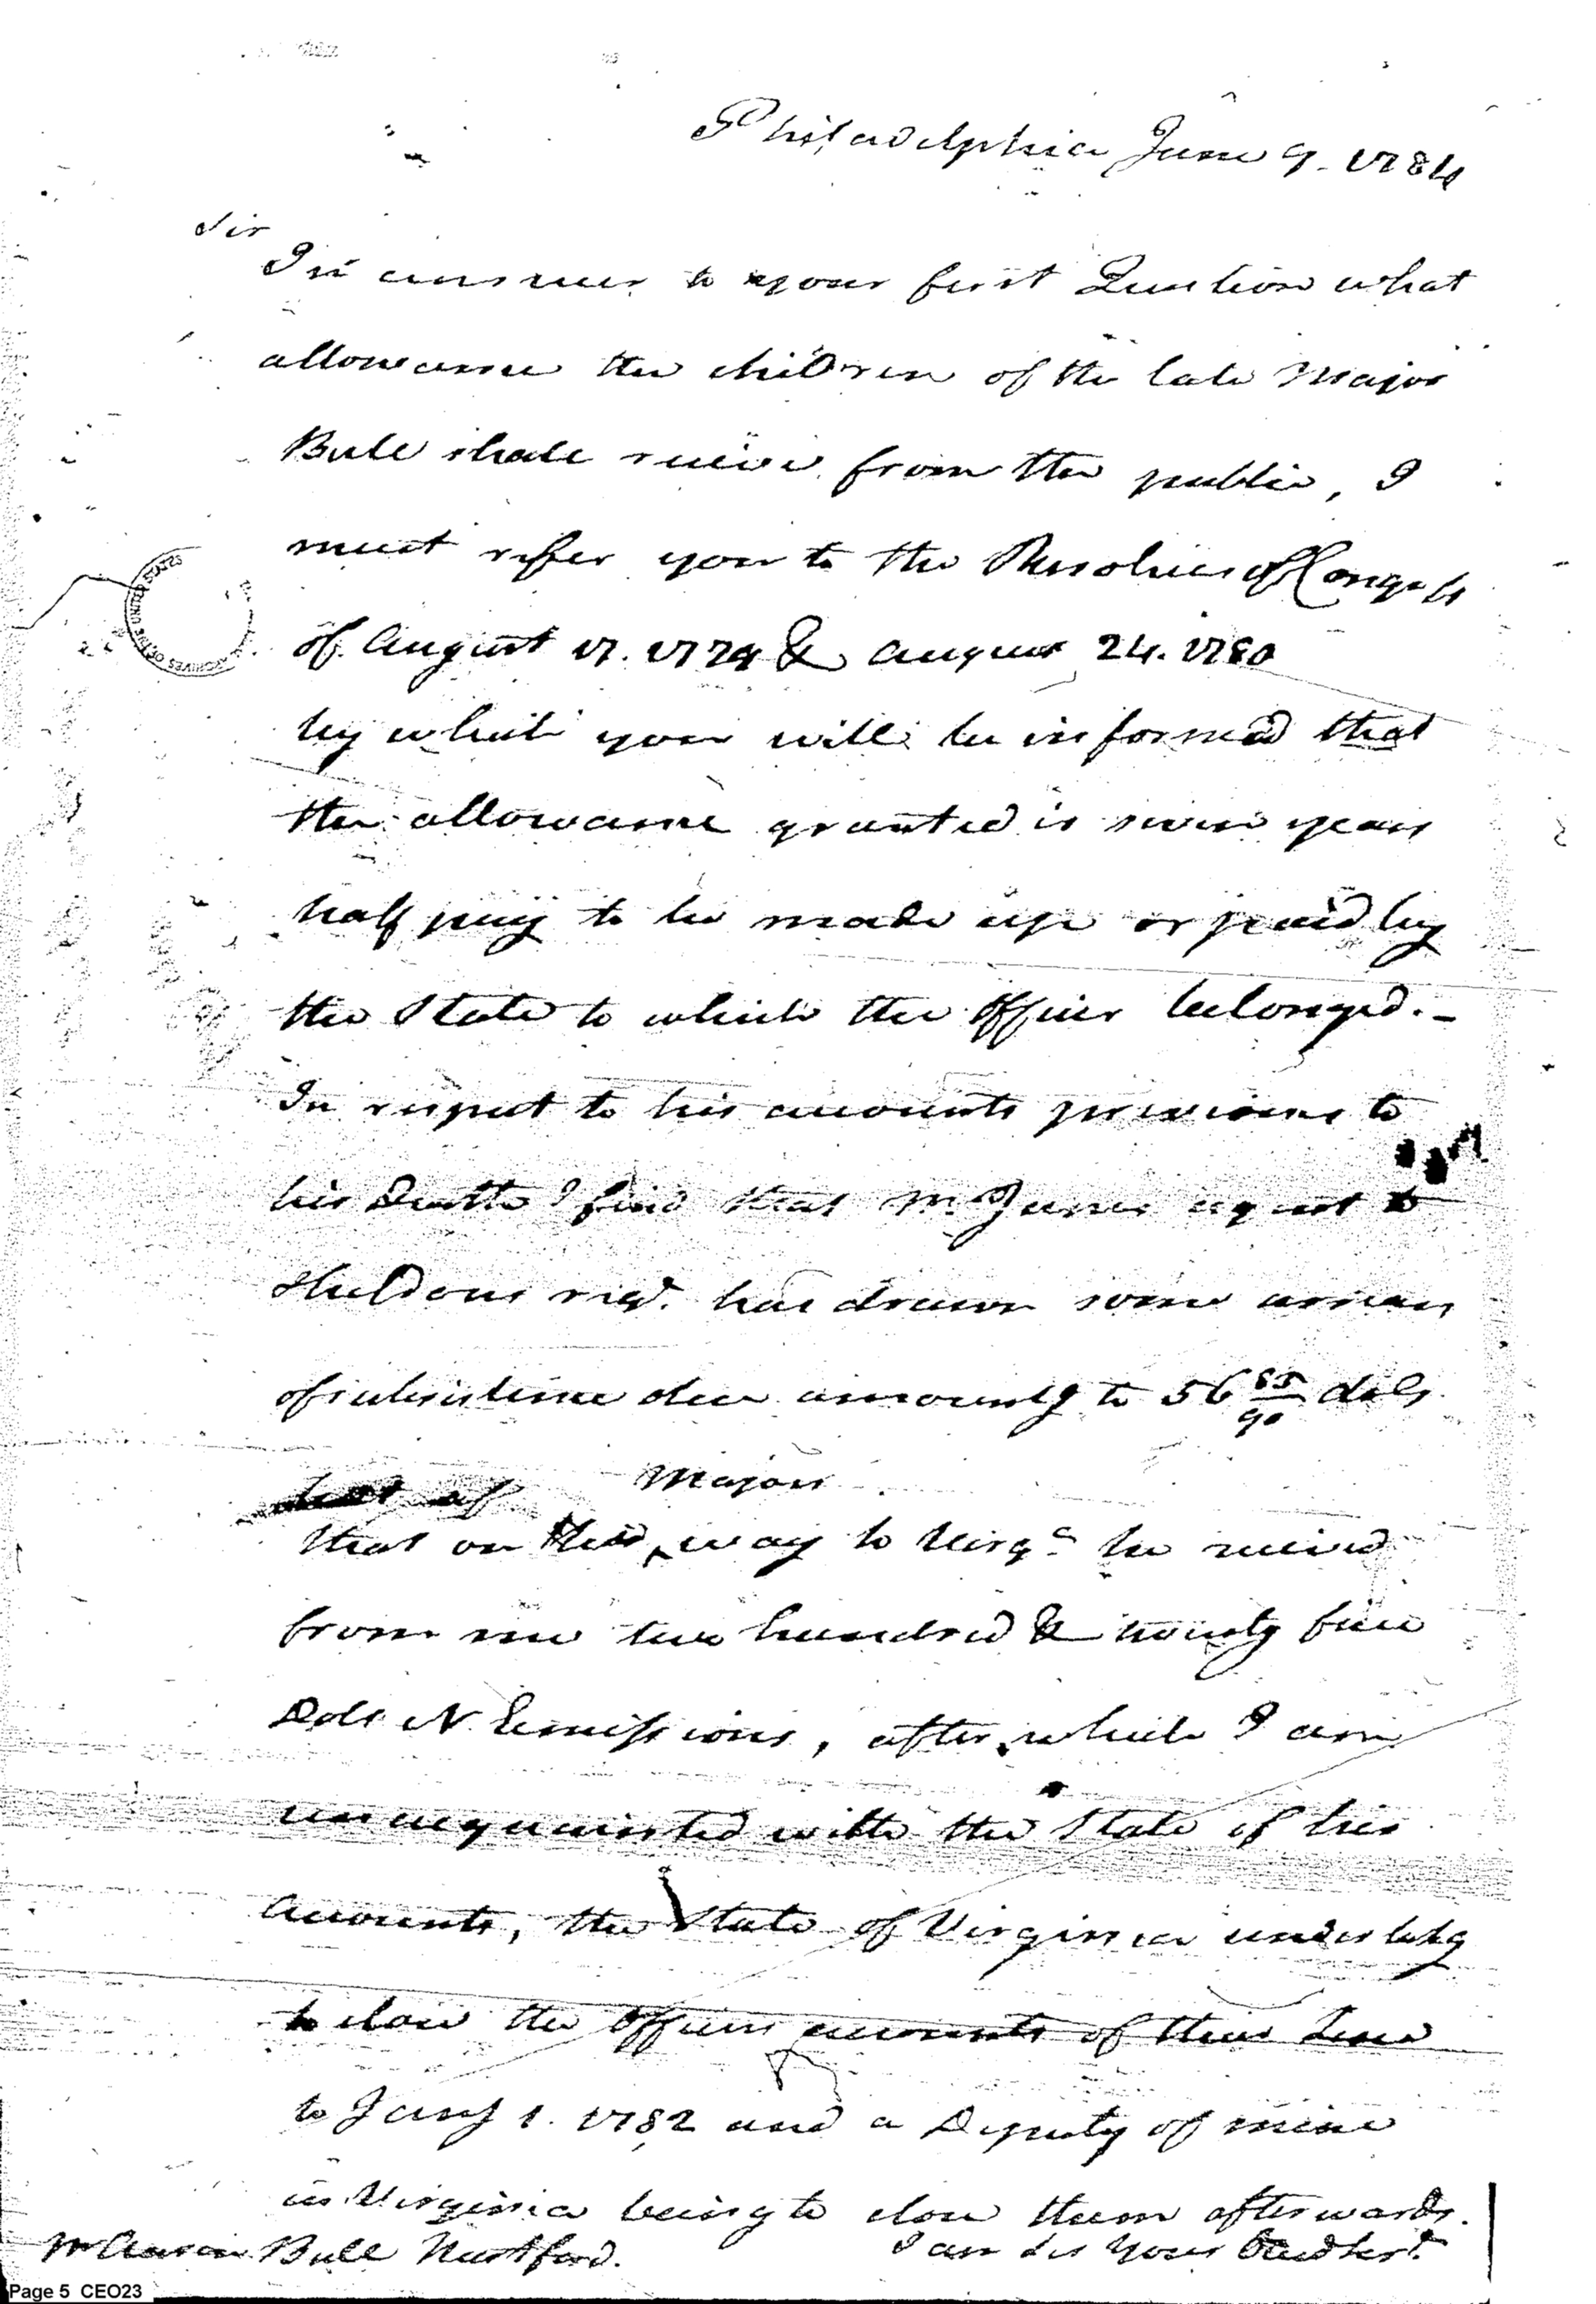 Philadelphia June 9. 1784
Sir
In answer to your first Question what
allowance the children of the late Major
Bull shall receive from the public, I
must refer you to the Resolves of Congress
of August 17. 1779 & August 24. 1780
by which you will be informed that
the allowance granted is seven years
half pay to be made up or paid by
the State to which the Officer belonged. –
In respect to his accounts previous to
his Death I find that Mr. agent to
Sheldons regt. has drawn some arrears
of subsistence due amountg to 56 85/90 dols
Majors
that on his way to Virga he received
from me two hundred & twenty five
Dols N. Emissions, after which I am
unacquainted with the State of his
Accounts, the State of Virginia undertakg
to close the Officers accounts of their Line
to Jany 1. 1782 and a Deputy of mine
in Virginia being to close them afterwards.
Mr Aaron Bull Hartford.
I am Sir Your
ARCHIVES OF THE UNITED STATES
Page 5 CEO23